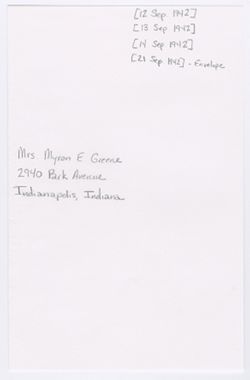 [12 Sep 1942]
[13 Sep 1942]
[14 Sep 1942]
[21 Sep 1942] - Envelope
Mrs Myron E Greene
2940 Park Avenue
Indianapolis, Indiana